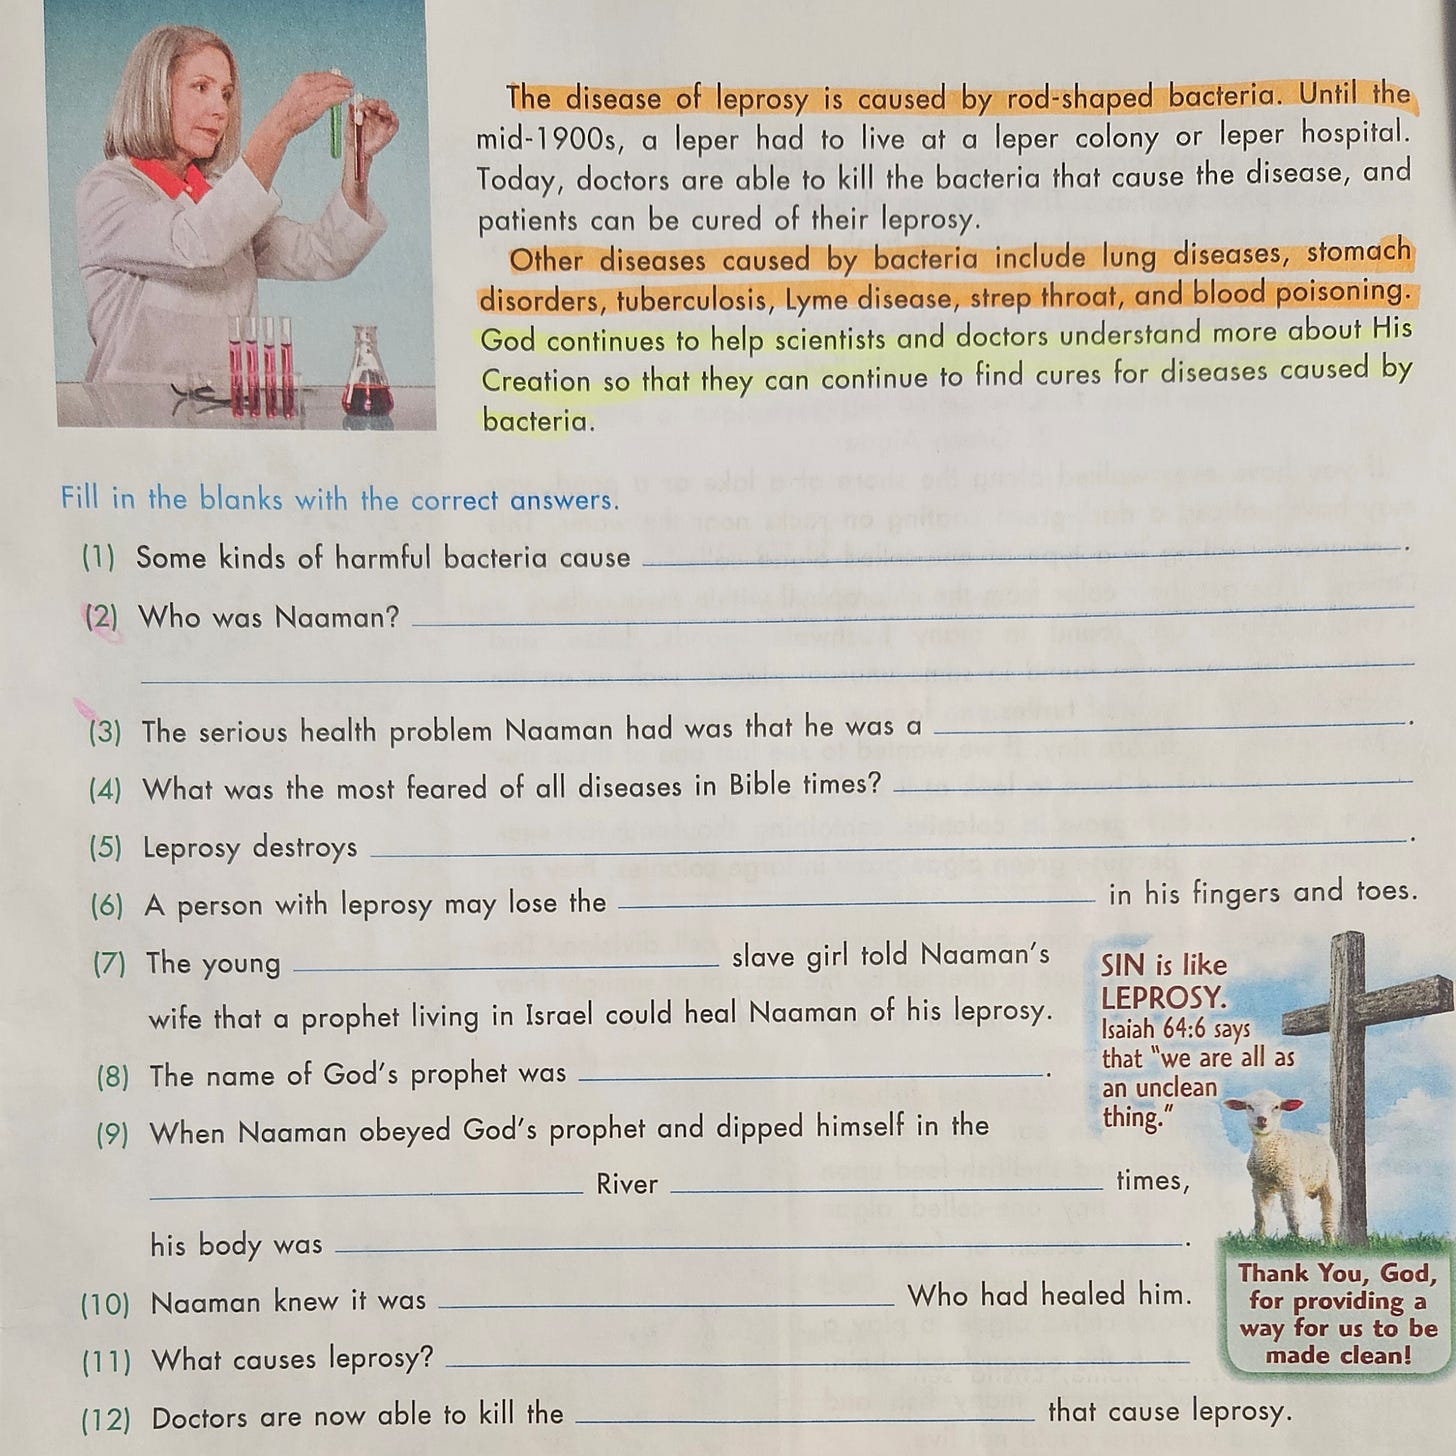 The disease of leprosy is caused by rod-shaped bacteria. Until the
mid-1900s, a leper had to live at a leper colony or leper hospital.
Today, doctors are able to kill the bacteria that cause the disease, and
patients can be cured of their leprosy.
Other diseases caused by bacteria include lung diseases, stomach
disorders, tuberculosis, Lyme disease, strep throat, and blood poisoning.
God continues to help scientists and doctors understand more about His
Creation so that they can continue to find cures for diseases caused by
bacteria.
Fill in the blanks with the correct answers.
(1) Some kinds of harmful bacteria cause ____.
(2) Who was Naaman? ____
(3) The serious health problem Naaman had was that he was a ____.
(4) What was the most feared of all diseases in Bible times? ____
(5) Leprosy destroys ____.
(6) A person with leprosy may lose the ____ in his fingers and toes.
(7) The young ____ slave girl told Naaman's
wife that a prophet living in Israel could heal Naaman of his leprosy.
(8) The name of God's prophet was ____.
(9) When Naaman obeyed God's prophet and dipped himself in the
____ River ____ times,
his body was ____.
(10) Naaman knew it was ____ Who had healed him.
(11) What causes leprosy? ____
(12) Doctors are now able to kill the ____ that cause leprosy.
SIN is like
LEPROSY.
Isaiah 64:6 says
that "we are all as
an unclean
thing."
Thank You, God,
for providing a
way for us to be
made clean!